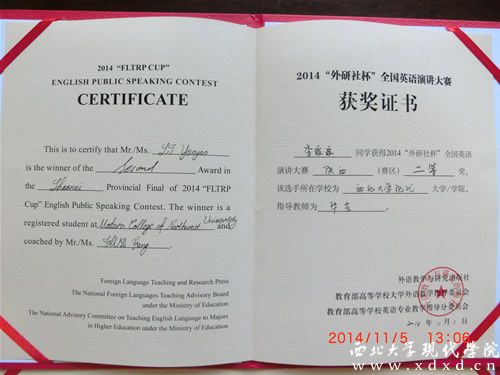 2014 “FLTRP CUP”
ENGLISH PUBLIC SPEAKING CONTEST
CERTIFICATE
This is to certify that Mr./Ms. LI Yaoyao
is the winner of the Second Award in
the Shaanxi Provincial Final of 2014 “FLTRP
Cup” English Public Speaking Contest. The winner is a
registered student at Modern College of Northwest University and
coached by Mr./Ms. Fang .
Foreign Language Teaching and Research Press
The National Foreign Languages Teaching Advisory Board
under the Ministry of Education
The National Advisory Committee on Teaching English Language to Majors
in Higher Education under the Ministry of Education
2014 “外研社杯” 全国英语演讲大赛
获奖证书
同学获得2014 “外研社杯” 全国英语
演讲大赛 陕西 (赛区) 二等 奖。
该选手所在学校为 西北大学现代 大学/学院，
指导教师为 。
外语教学与研究出版社
教育部高等学校大学外语教学指导委员会
教育部高等学校英语专业教学指导分委员会
2014/11/5 13:06
西北大学现代学院
www.xdxd.cn